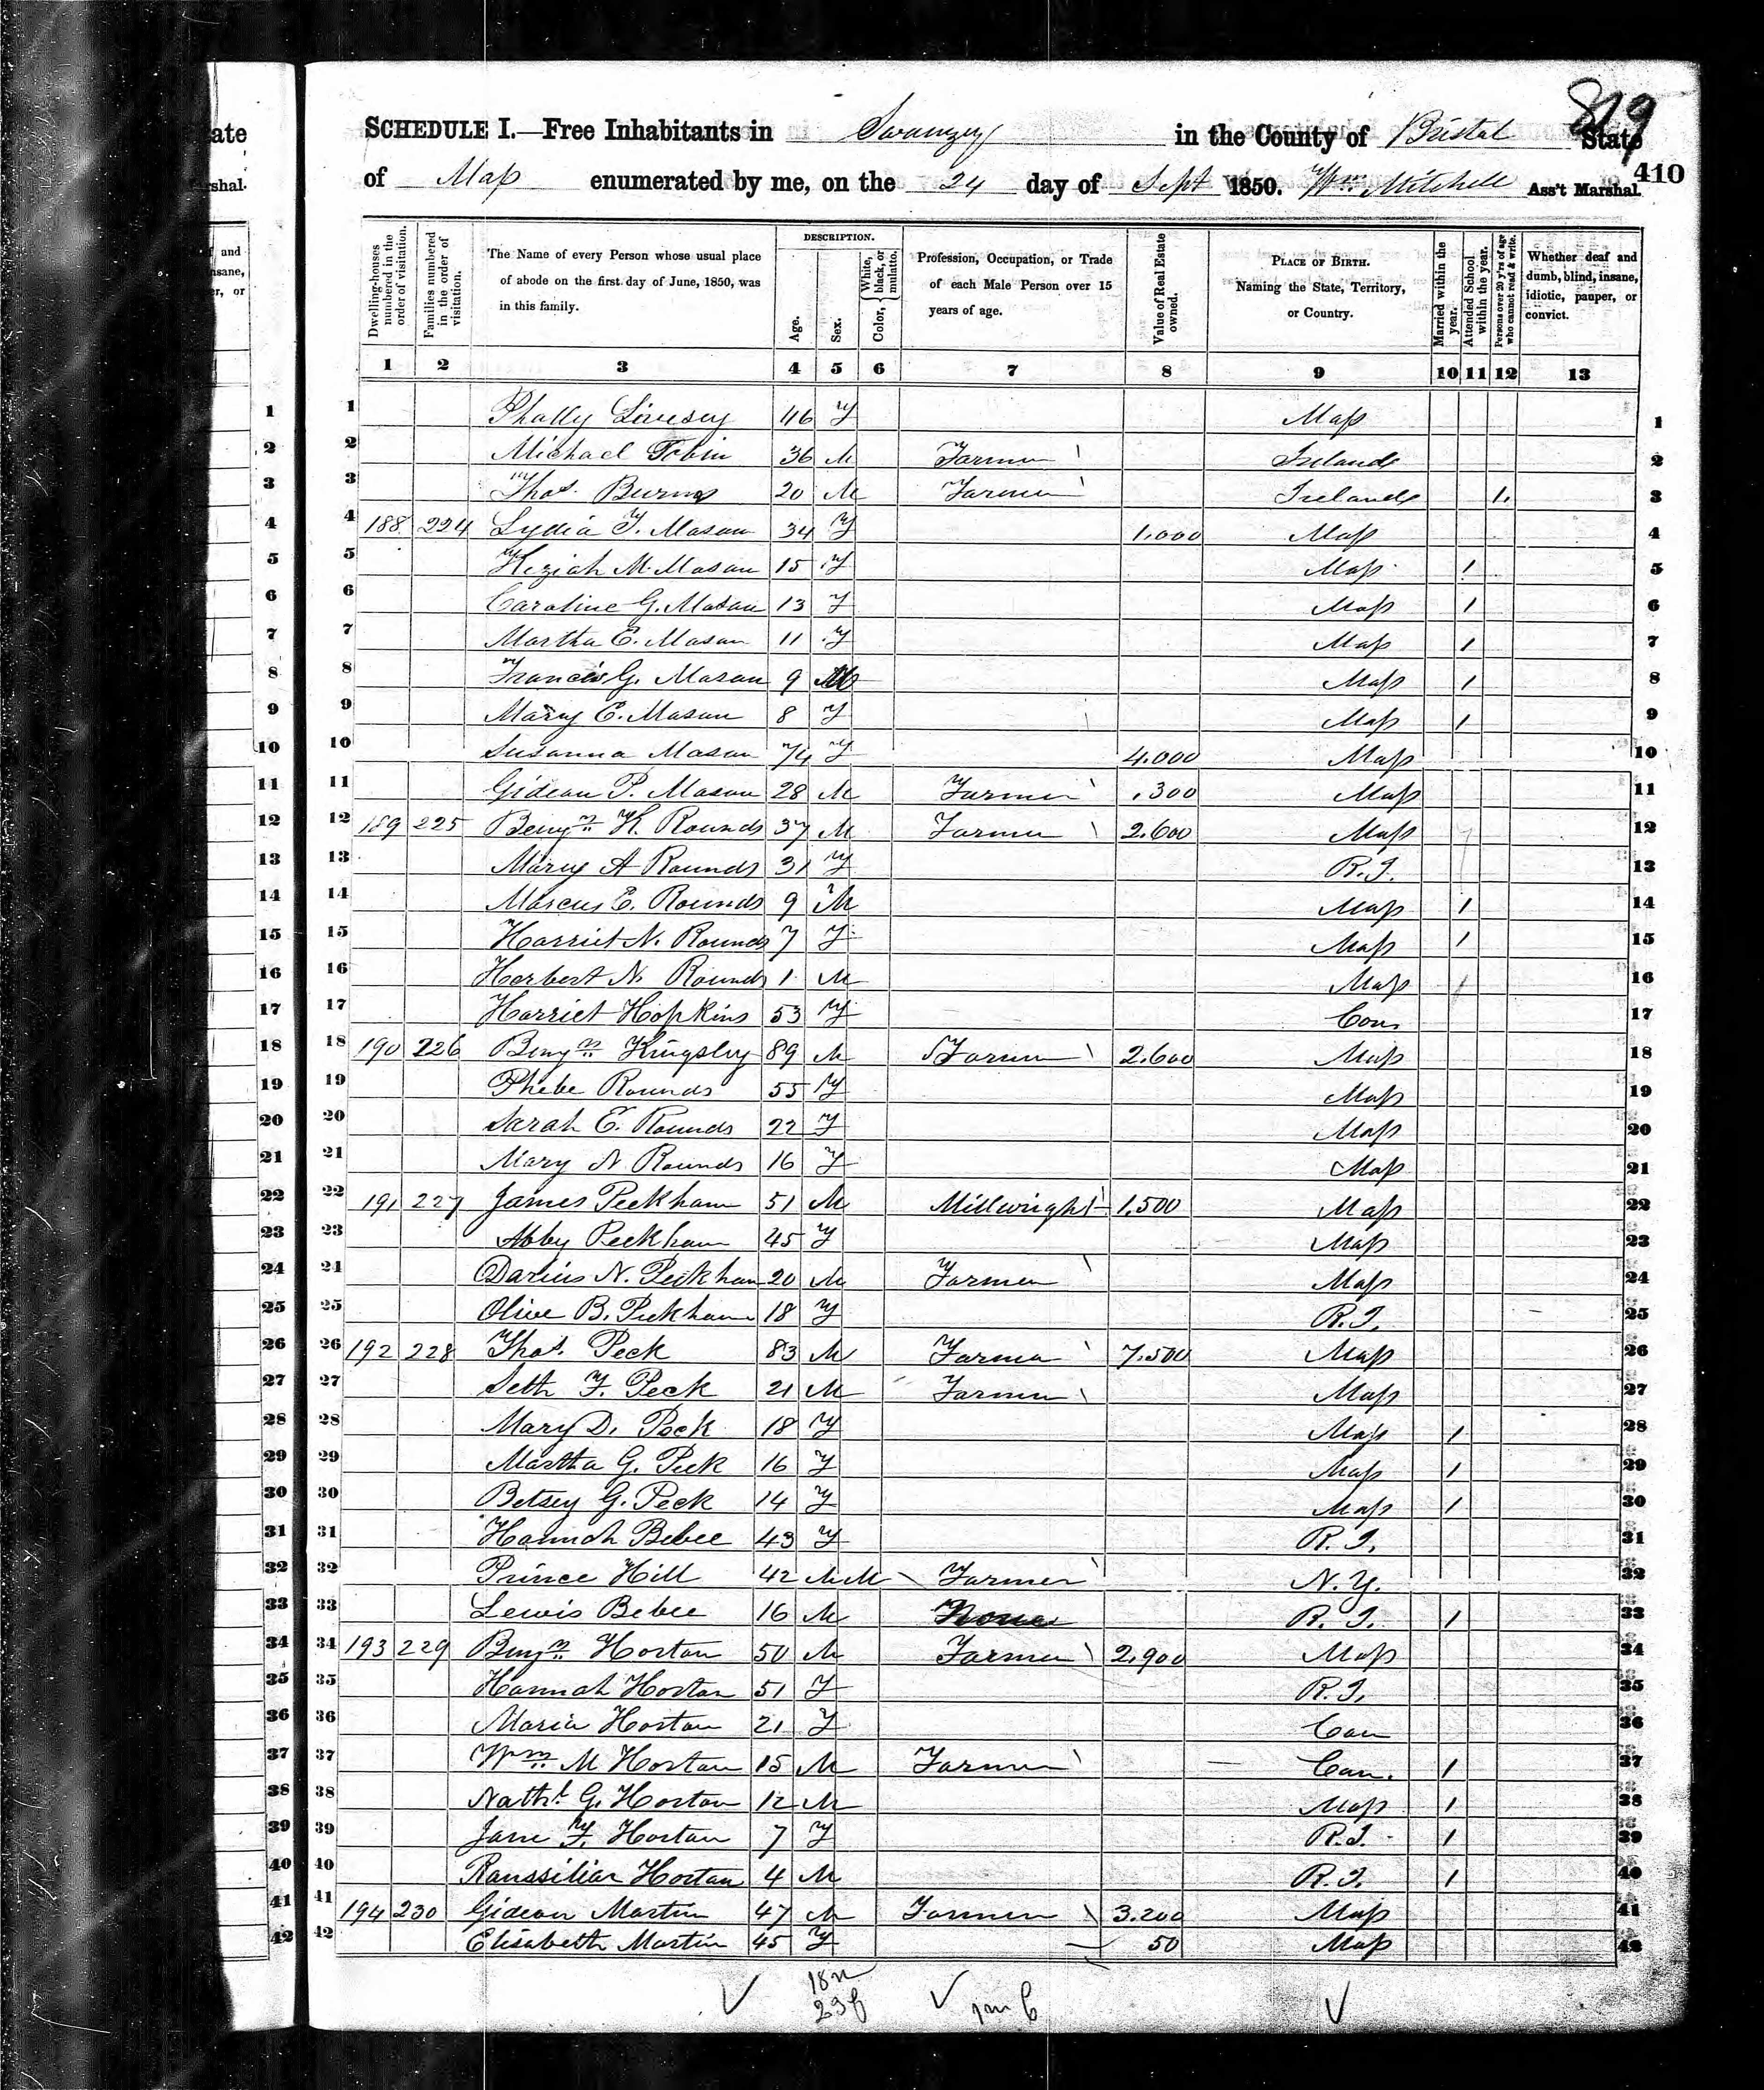 ate
819
SCHEDULE I.—Free Inhabitants in Swanzey in the County of Bristol State
rshal.
of Mass enumerated by me, on the 24 day of Sept 1850. Wm. Mitchell Ass't Marshal.
410
Dwelling-houses numbered in the order of visitation.
Families numbered in the order of visitation.
The Name of every Person whose usual place of abode on the first day of June, 1850, was in this family.
DESCRIPTION.
Age.
Sex.
Color, { White, black, or mulatto.
Profession, Occupation, or Trade of each Male Person over 15 years of age.
Value of Real Estate owned.
PLACE OF BIRTH. Naming the State, Territory, or Country.
Married within the year.
Attended School within the year.
Persons over 20 y'rs of age who cannot read & write.
Whether deaf and dumb, blind, insane, idiotic, pauper, or convict.
1 2 3 4 5 6 7 8 9 10 11 12 13
1 1 46 F Mass 1
2 2 Michael Tobin 36 M Farmer Ireland 2
3 3 Thos. Burns 20 M Farmer Ireland 1 3
4 4 188 224 Lydia F. Mason 34 F 1.000 Mass 4
5 5 Keziah M. Mason 15 F Mass 1 5
6 6 Caroline G. Mason 13 F Mass 1 6
7 7 Martha E. Mason 11 F Mass 1 7
8 8 Francis G. Mason 9 M Mass 1 8
9 9 Mary E. Mason 8 F Mass 1 9
10 10 Susanna Mason 74 F 4.000 Mass 10
11 11 Gideon P. Mason 28 M Farmer .300 Mass 11
12 12 189 225 Benjn K. Rounds 37 M Farmer 2.600 Mass 12
13 13 Mary A Rounds 31 F R.I. 13
14 14 Marcus E. Rounds 9 M Mass 1 14
15 15 Harriet N. Rounds 7 F Mass 1 15
16 16 Herbert N. Rounds 1 M Mass 1 16
17 17 Harriet Hopkins 53 F Con. 17
18 18 190 226 Benjn Kingsley 89 M Farmer 2.600 Mass 18
19 19 Phebe Rounds 55 F Mass 19
20 20 Sarah E. Rounds 22 F Mass 20
21 21 Mary N Rounds 16 F Mass 21
22 22 191 227 James Peckham 51 M Millwright 1.500 Mass 22
23 23 Abby Peckham 45 F Mass 23
24 24 Darius N. Peckham 20 M Farmer Mass 24
25 25 Olive B. Peckham 18 F R.I. 25
26 26 192 228 Thos. Peck 83 M Farmer 7.500 Mass 26
27 27 Seth F. Peck 21 M Farmer Mass 27
28 28 Mary D. Peck 18 F Mass 1 28
29 29 Martha G. Peck 16 F Mass 1 29
30 30 Betsey G. Peck 14 F Mass 1 30
31 31 Hannah Bebee 43 F R.I. 31
32 32 Prince Hill 42 M M Farmer N.Y. 32
33 33 Lewis Bebee 16 M None R.I. 1 33
34 34 193 229 Benjn Horton 50 M Farmer 2.900 Mass 34
35 35 Hannah Horton 51 F R.I. 35
36 36 Maria Horton 21 F Con 36
37 37 Wm M Horton 15 M Farmer Con. 1 37
38 38 Nathl. G. Horton 12 M Mass 1 38
39 39 Jane F. Horton 7 F R.I. 1 39
40 40 Ranssiliar Horton 4 M R.I. 1 40
41 41 194 230 Gideon Martin 47 M Farmer 3.200 Mass 41
42 42 Elisabeth Martin 45 F 50 Mass 42
18m
23f